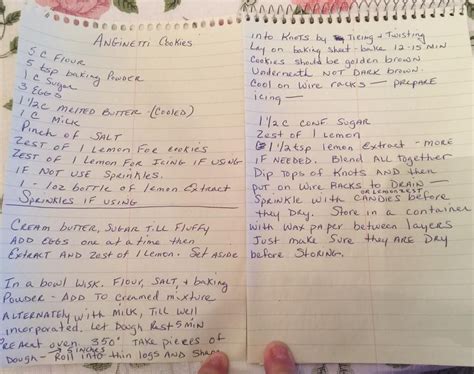 Anginetti Cookies
5 C Flour
5 tsp baking Powder
1 C Sugar
3 Eggs
1 1/2 C Melted Butter (Cooled)
1 C Milk
Pinch of Salt
Zest of 1 Lemon For Cookies
Zest of 1 Lemon For Icing if using
if not use Sprinkles.
1 - 1oz bottle of Lemon Extract
Sprinkles if using
Cream Butter, Sugar till Fluffy
Add Eggs one at a time then
Extract and Zest of 1 Lemon. Set aside
In a bowl wisk. Flour, Salt, + baking
Powder - Add to creamed mixture
Alternately with Milk, till well
incorporated. Let Dough Rest 5 min
Preheat oven 350° take pieces of
Dough - Roll into 5 inches thin logs and Shape
into Knots by Ticing + Twisting
Lay on baking sheet - bake 12-15 min
Cookies should be golden brown
Underneath not Dark brown.
Cool on wire racks — Prepare
icing —
1 1/2 C Conf Sugar
Zest of 1 Lemon
1 1/2 tsp lemon Extract - more
if needed. Blend All Together
Dip Tops of Knots and Then
put on wire Racks to Drain —
Sprinkle with Candies or Lemon zest before
they Dry. Store in a container
with wax paper between layers
Just make sure they are Dry
before Storing.